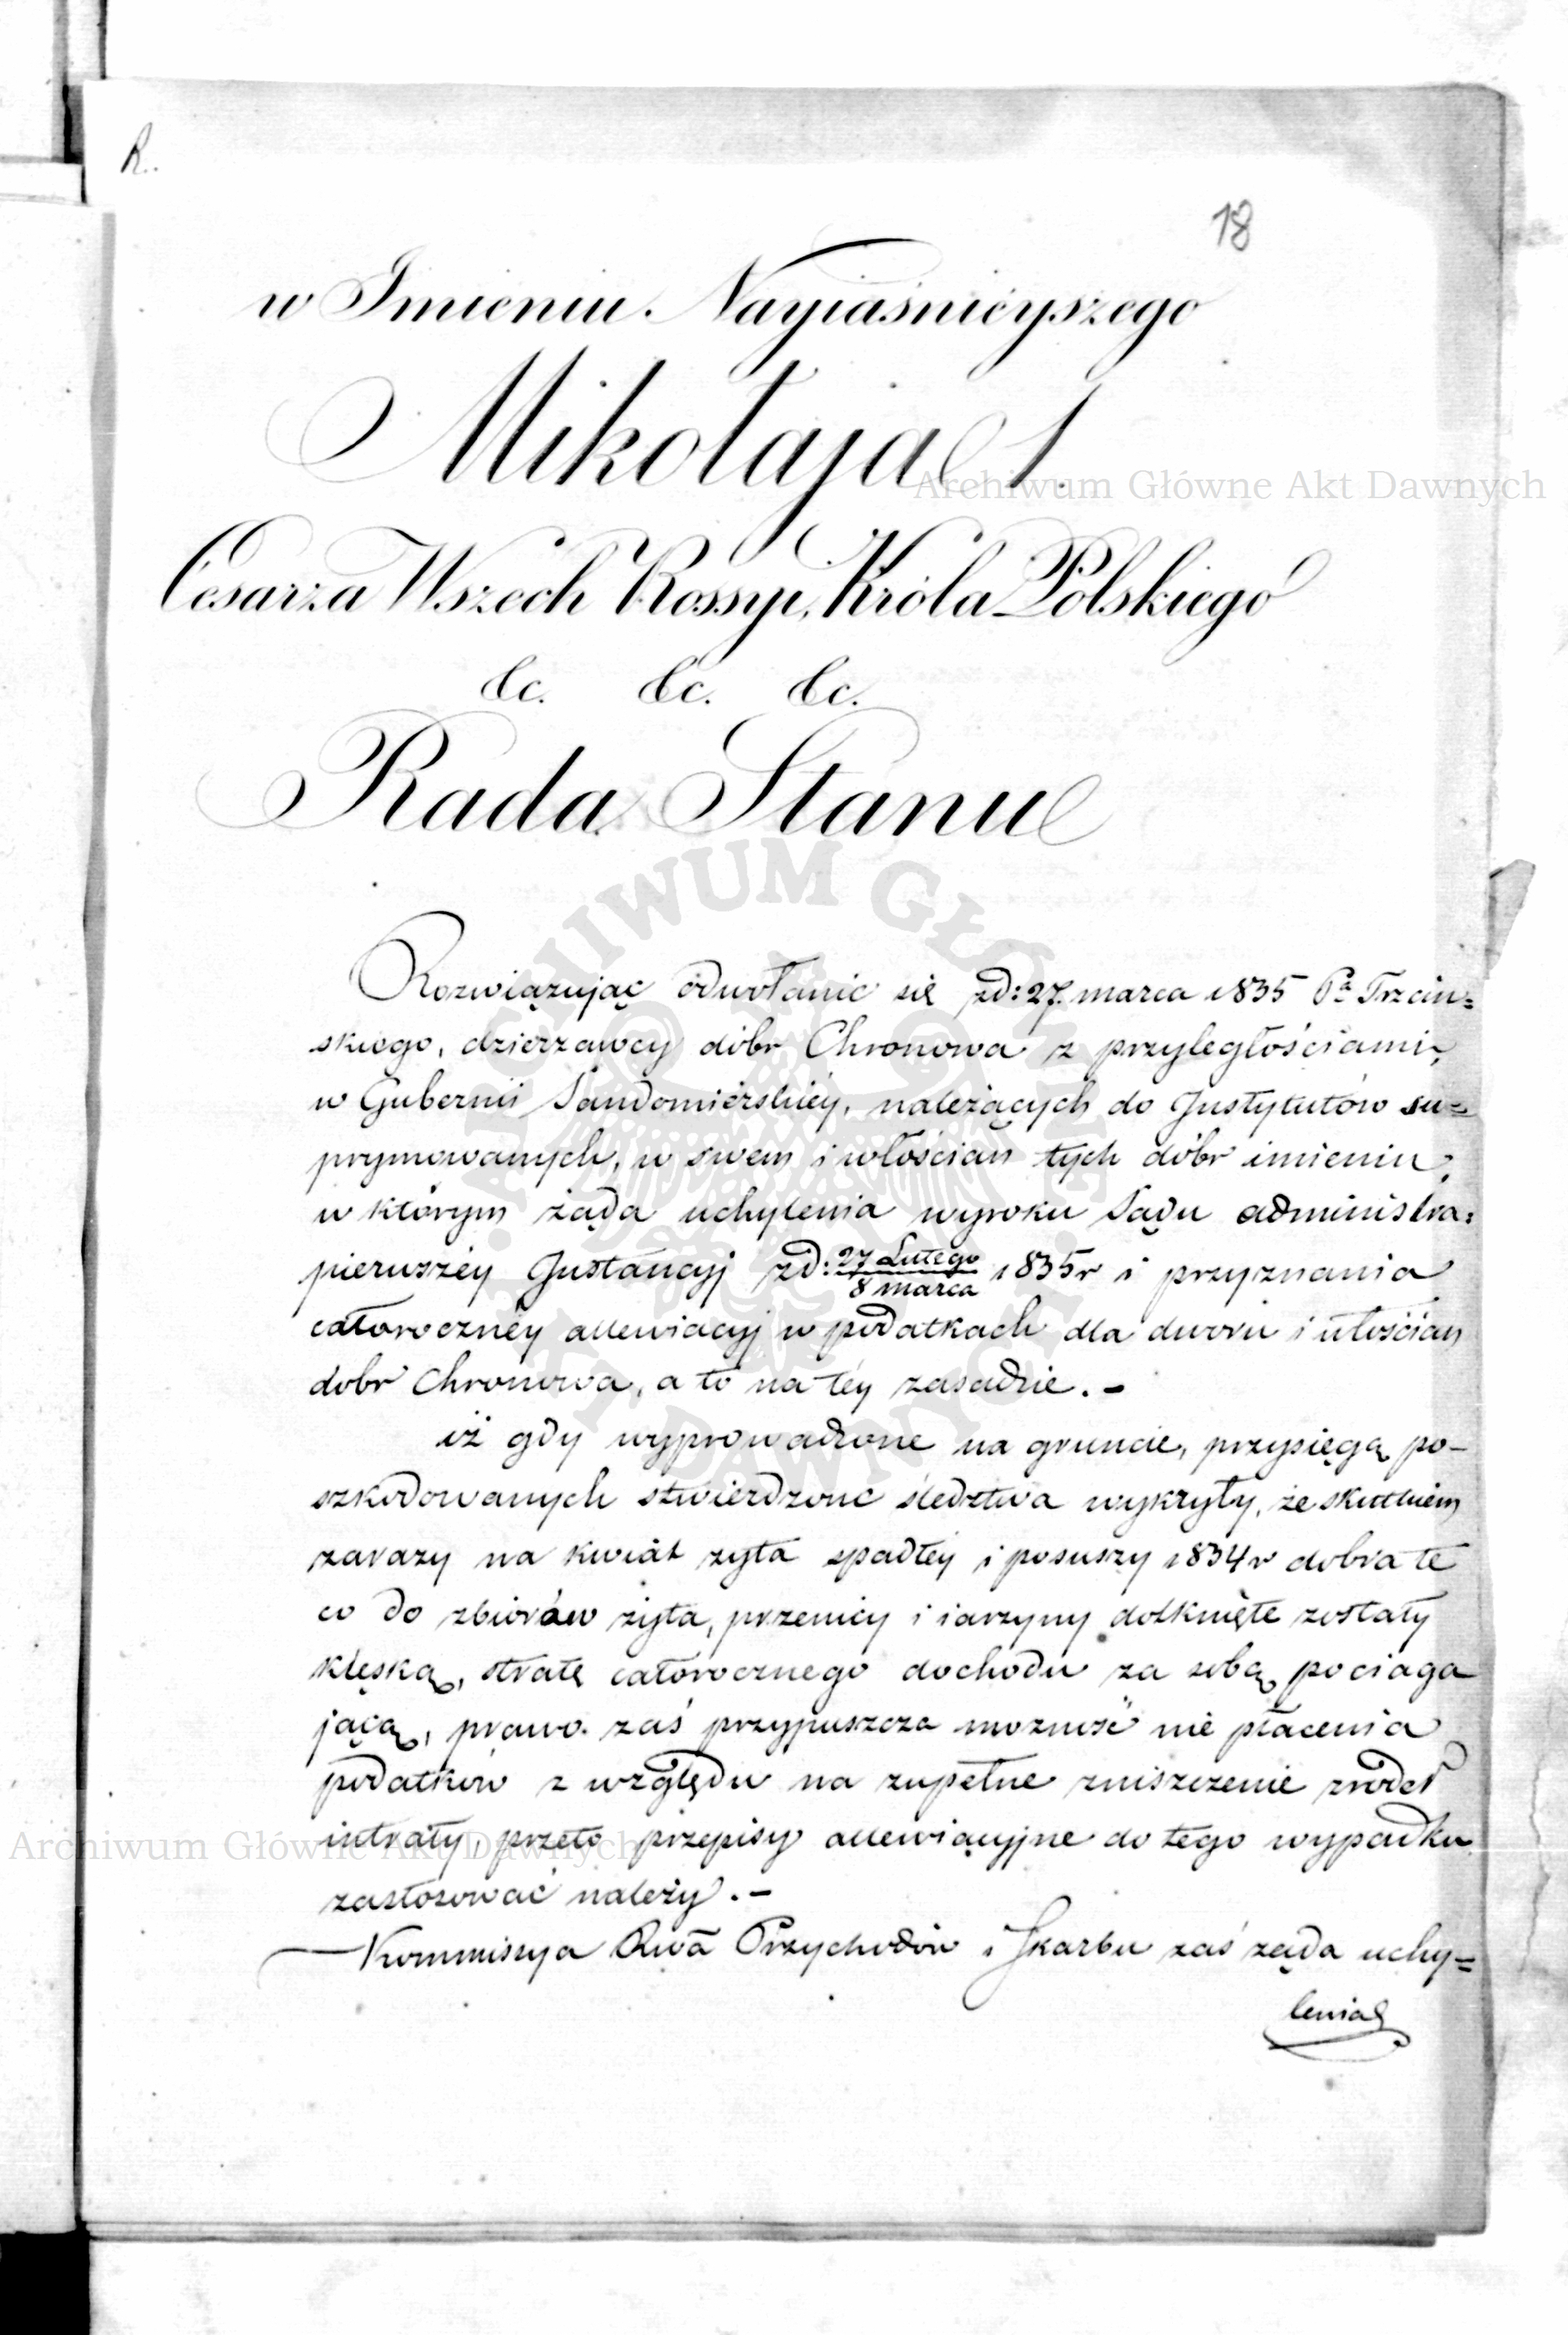 R.
18
w Imieniu Nayiaśnieyszego
Mikołaja I.
Cesarza Wszech Rossyi, Króla Polskiego
&c. &c. &c.
Rada Stanu
Rozwiązując odwołanie się zd: 27. marca 1835 Pa Trzciń=
skiego, dzierzawcy dóbr Chronowa z przyległościami,
w Gubernii Sandomiérskiéy, należących do Instytutów su=
prymowanych, w swem i włościan tych dóbr imieniu,
w którym żąda uchylenia wyroku Sądu administra:
pierwszéy Instancyj zd: 27 Lutego / 8 marca 1835r i przyznania
całoroczney allewiacyj w podatkach dla dworu i włościan
dobr Chronowa, a to na téy zasadzie. –
iż gdy wyprowadzone na gruncie, przysięgą po–
szkodowanych stwierdzone śledztwa wykryły, że skutkiem
zarazy na kwiat żyta spadłéy i posuszy 1834r dobra te
co do zbiorów żyta, pszenicy i iarzyny dotknięte zostały
klęską, stratę całorocznego dochodu za sobą pociąga
jącą, prawo zaś przypuszcza możność nie płacenia
podatków z względu na zupełne zniszczenie źródeł
intraty, przeto przepisy allewiacyjne do tego wypadku
zastosować należy. –
Kommissya Rwa Przychodów i Skarbu zaś żąda uchy=
lenia
Archiwum Główne Akt Dawnych
ARCHIWUM GŁÓWNE AKT DAWNYCH
Archiwum Główne Akt Dawnych